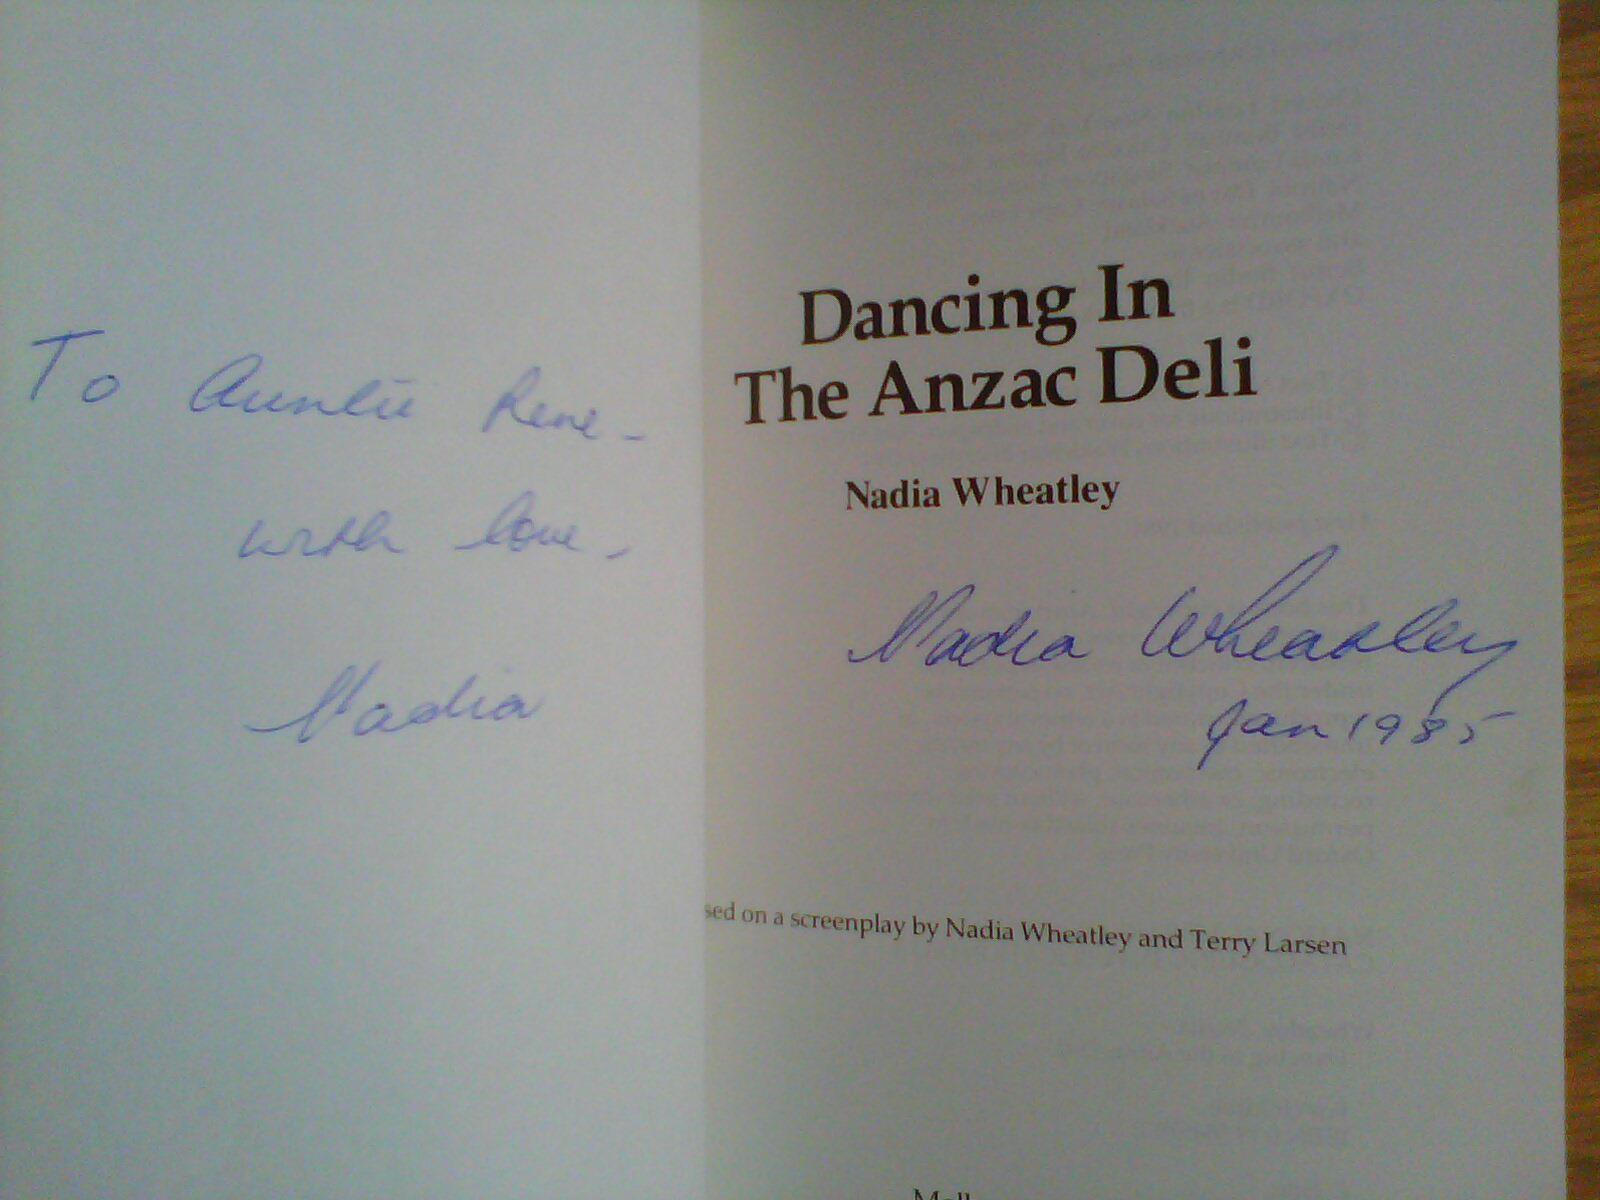 To Auntie Rene -
with love -
Nadia
Dancing In
The Anzac Deli
Nadia Wheatley
Nadia Wheatley
Jan 1985
sed on a screenplay by Nadia Wheatley and Terry Larsen